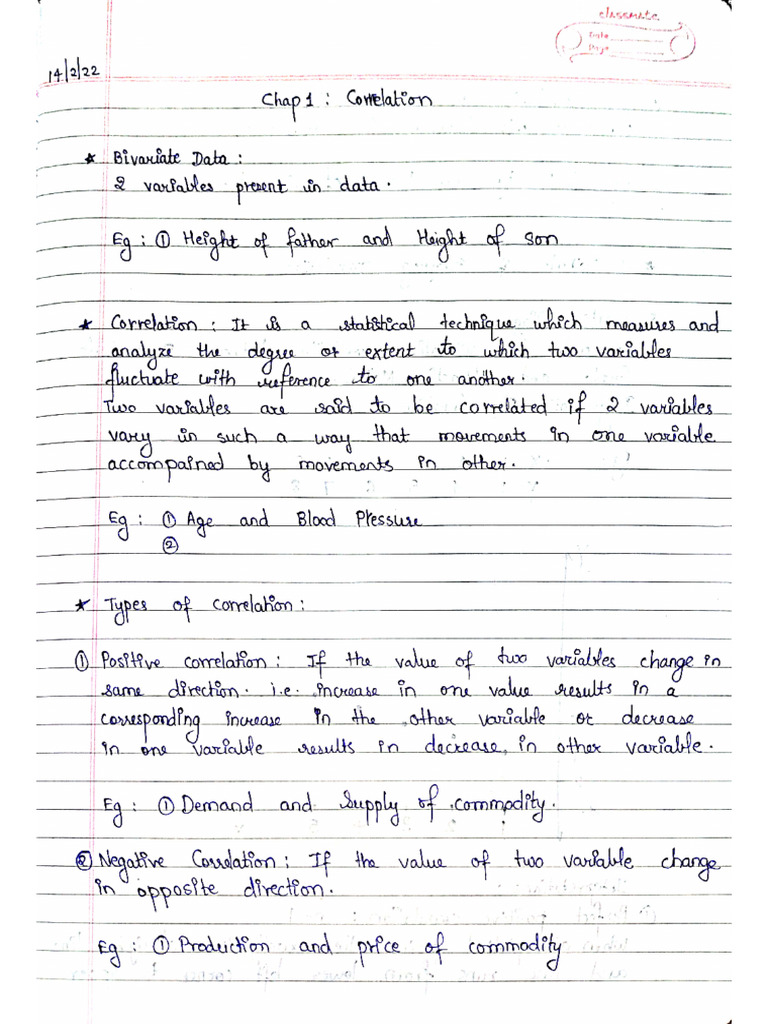 classmate
Date
Page
14/2/22
Chap 1 : Correlation
* Bivariate Data :
2 variables present in data.
Eg : ① Height of father and Height of son
* Correlation : It is a statistical technique which measures and
analyze the degree or extent to which two variables
fluctuate with reference to one another.
Two variables are said to be correlated if 2 variables
vary in such a way that movements in one variable
accompained by movements in other.
Eg : ① Age and Blood Pressure
②
* Types of correlation :
① Positive correlation : If the value of two variables change in
same direction. i.e. increase in one value results in a
corresponding increase in the other variable or decrease
in one variable results in decrease in other variable.
Eg : ① Demand and Supply of commodity.
② Negative Correlation : If the value of two variable change
in opposite direction.
Eg : ① Production and price of commodity